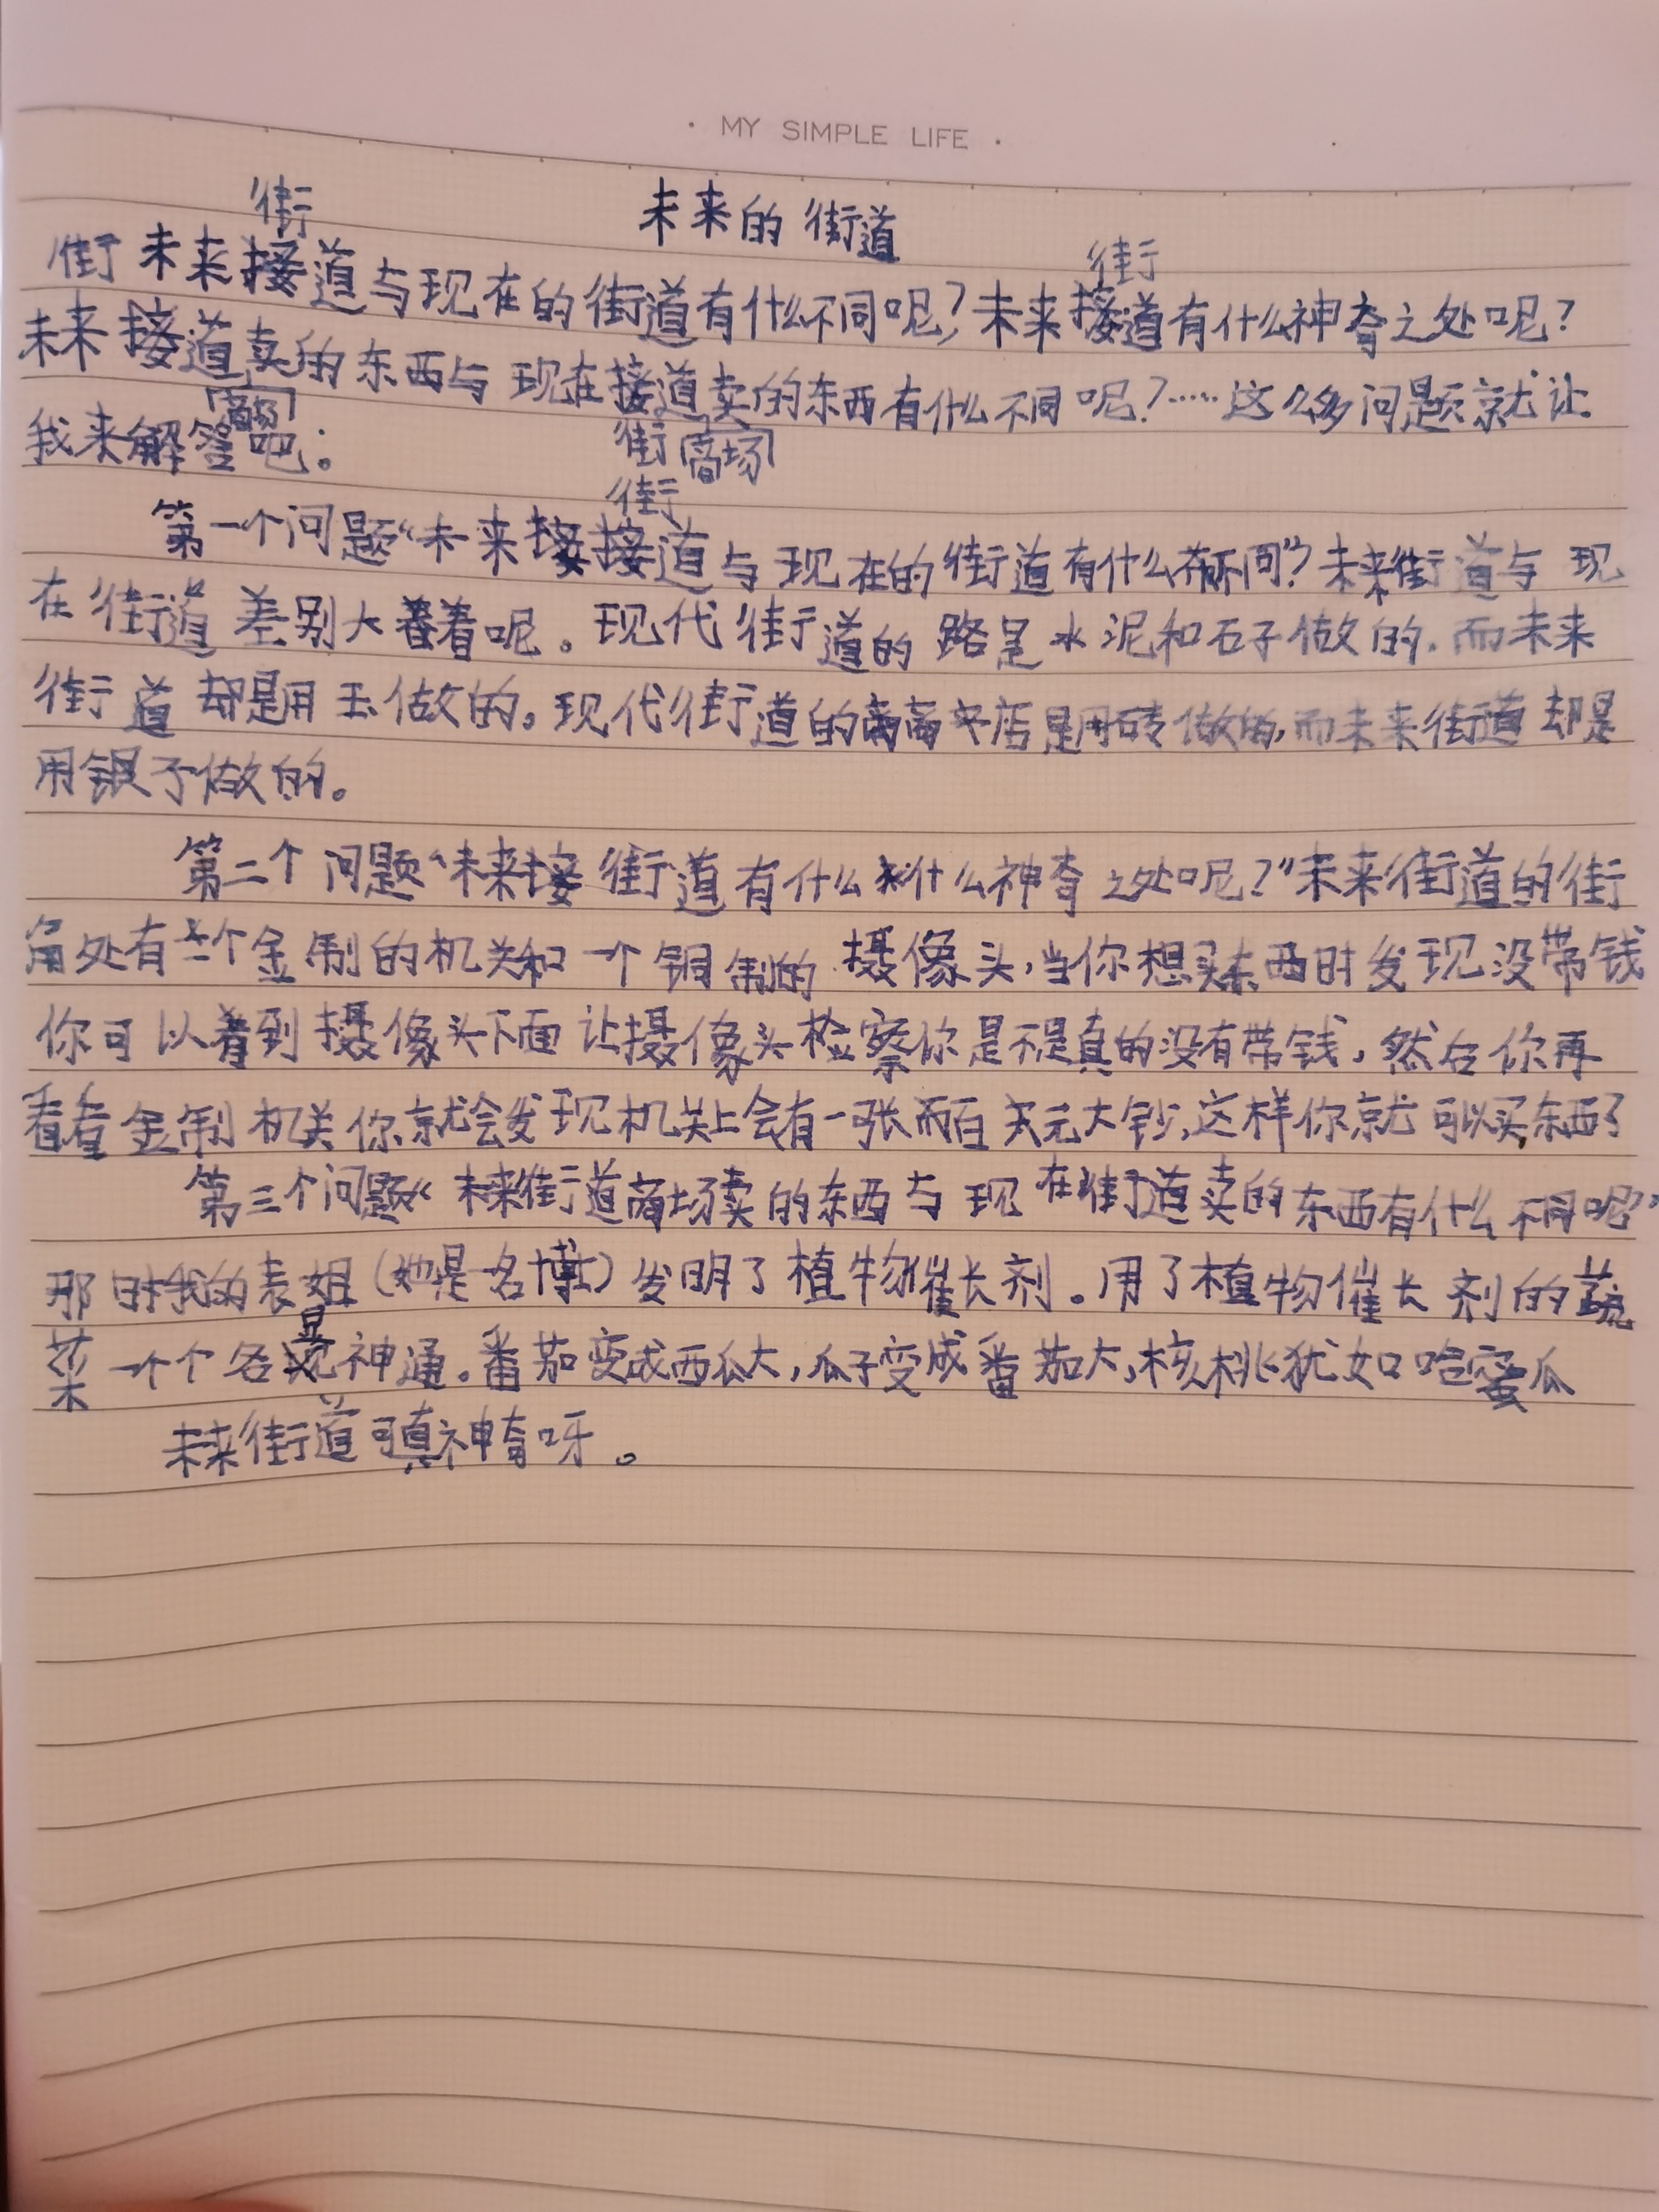 · MY SIMPLE LIFE ·
未来的街道
街
街
街未来接道与现在的街道有什么不同呢?未来接道有什么神奇之处呢?
未来接道卖的东西与现在接道卖的东西有什么不同呢?……这么多问题就让
商场
我来解答吧:
街商场
街
第一个问题“未来接道与现在的街道有什么不同”?未来街道与现
在街道差别大着呢。现代街道的路是水泥和石子做的.而未来
街道却是用玉做的。现代街道的店是用砖做的,而未来街道却是
用银子做的。
第二个问题“未来街道有什么什么神奇之处呢?”未来街道的街
角处有一个金制的机关和一个铜制的摄像头,当你想买东西时发现没带钱
你可以着到摄像头下面让摄像头检察你是不是真的没有带钱,然后你再
看看金制机关你就会发现机关上会有一张百元大钞,这样你就可以买东西了
第三个问题“未来街道商场卖的东西与现在街道卖的东西有什么不同呢”
那时我的表姐(她是名博士)发明了植物催长剂。用了植物催长剂的蔬
菜一个个各显神通。番茄变成西瓜大,瓜子变成番茄大,核桃犹如哈蜜瓜
未来街道可真神奇呀。